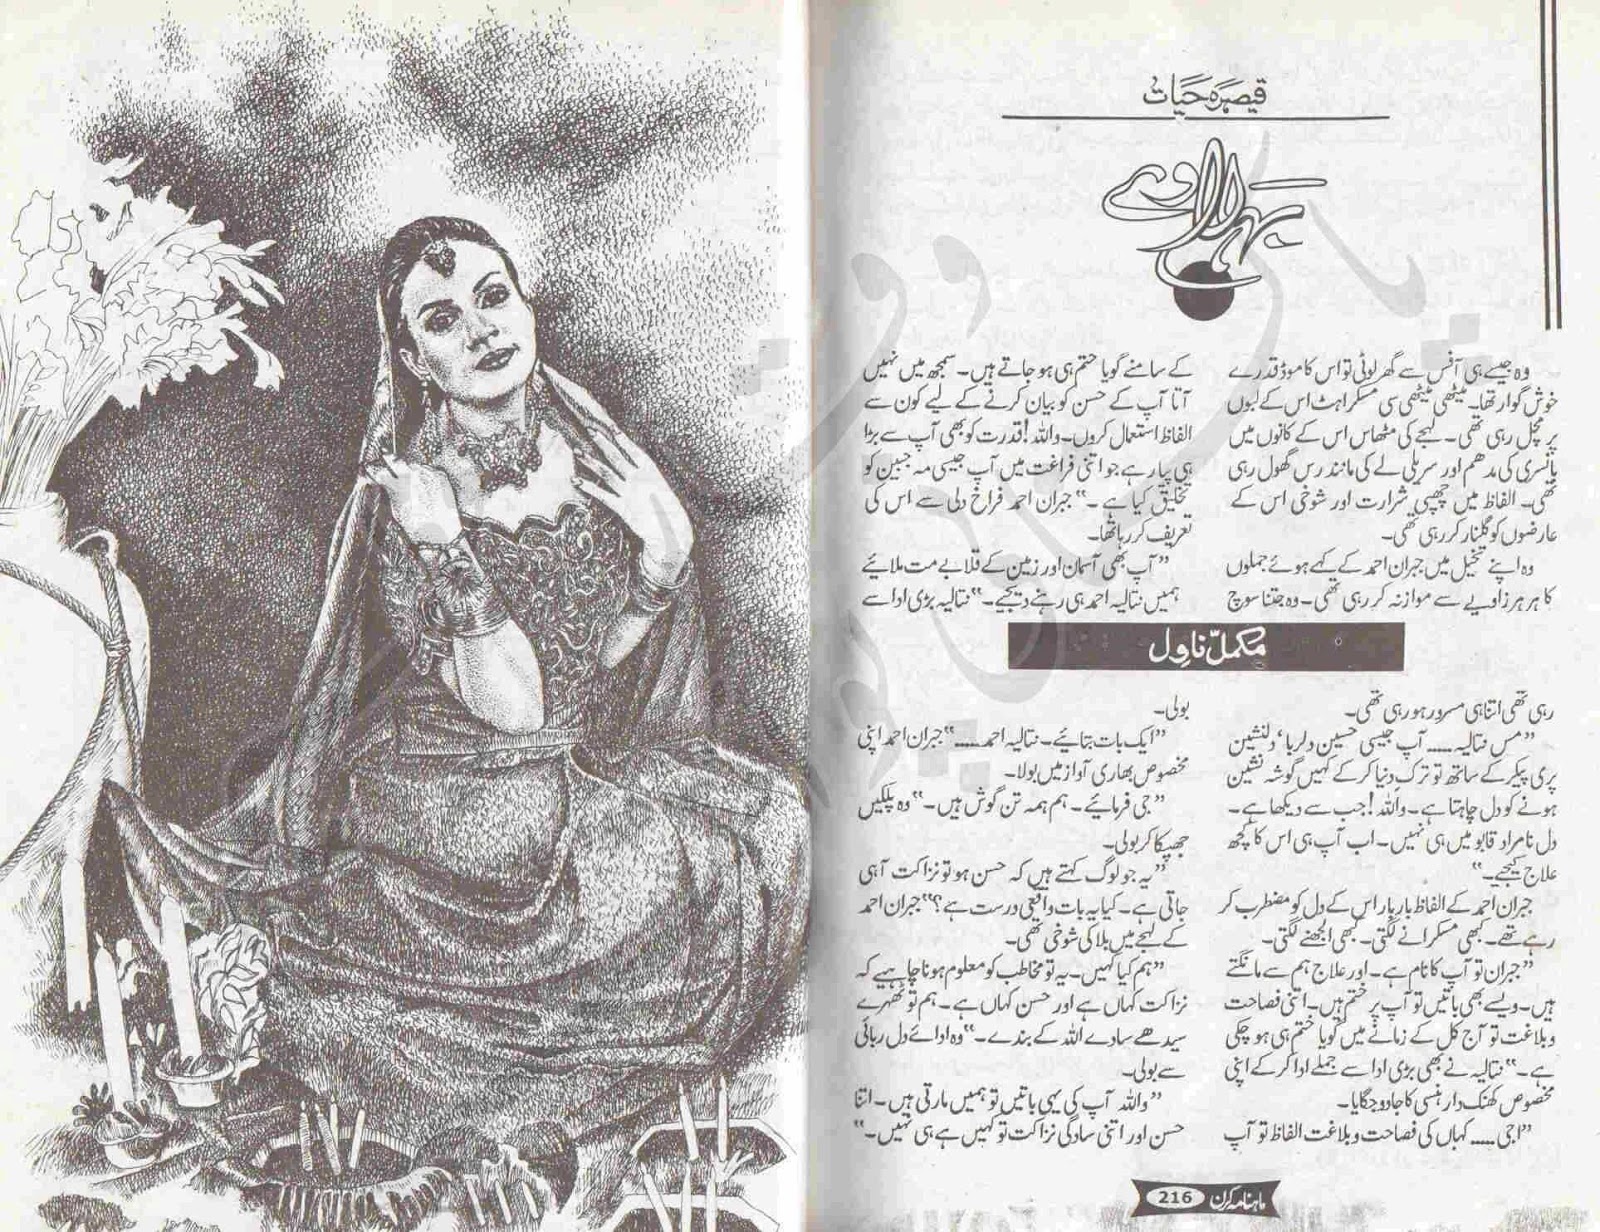 قیصرہ حیات
وہ جیسے ہی آفس سے گھر لوٹی تو اس کا موڈ قدرے
خوش گوار تھا۔ میٹھی میٹھی سی مسکراہٹ اس کے لبوں
پر مچل رہی تھی۔ لہجے کی مٹھاس اس کے کانوں میں
بانسری کی مدھم اور سریلی لے کی مانند رس گھول رہی
تھی۔ الفاظ میں چھپی شرارت اور شوخی اس کے
عارضوں کو گلنار کر رہی تھی۔
وہ اپنے تخیل میں جبران احمد کے کہے ہوئے جملوں
کا ہر ہر زاویے سے موازنہ کر رہی تھی۔ وہ جتنا سوچ
رہی تھی اتنا ہی مسرور ہو رہی تھی۔
”مس نتالیہ ...... آپ جیسی حسین دلربا‘ دلنشین
پری پیکر کے ساتھ تو ترک دنیا کرکے کہیں گوشہ نشین
ہونے کو دل چاہتا ہے۔ واللہ! جب سے دیکھا ہے۔
دل نامراد قابو میں ہی نہیں۔ اب آپ ہی اس کا کچھ
علاج کیجیے۔“
جبران احمد کے الفاظ بار بار اس کے دل کو مضطرب کر
رہے تھے۔ کبھی مسکرانے لگتی۔ کبھی الجھنے لگتی۔
”جبران تو آپ کا نام ہے۔ اور علاج ہم سے مانگتے
ہیں۔ ویسے بھی باتیں تو آپ پر ختم ہیں۔ اتنی فصاحت
وبلاغت تو آج کل کے زمانے میں گویا ختم ہی ہو چکی
ہے۔“ نتالیہ نے بھی بڑی ادا سے جملے ادا کرکے اپنی
مخصوص کھنک دار ہنسی کا جادو جگایا۔
”اجی ...... کہاں کی فصاحت وبلاغت الفاظ تو آپ
کے سامنے گویا ختم ہی ہو جاتے ہیں۔ سمجھ میں نہیں
آتا آپ کے حسن کو بیان کرنے کے لیے کون سے
الفاظ استعمال کروں۔ واللہ! قدرت کو بھی آپ سے بڑا
ہی پیار ہے جو اتنی فراغت میں آپ جیسی مہ جبین کو
تخلیق کیا ہے۔“ جبران احمد فراخ دلی سے اس کی
تعریف کر رہا تھا۔
”آپ بھی آسمان اور زمین کے قلابے مت ملائیے
ہمیں نتالیہ احمد ہی رہنے دیجیے۔“ نتالیہ بڑی ادا سے
مکمل ناول
بولی۔
”ایک بات بتائیے۔ نتالیہ احمد ......“ جبران احمد اپنی
مخصوص بھاری آواز میں بولا۔
”جی فرمائیے۔ ہم ہمہ تن گوش ہیں۔“ وہ پلکیں
جھپکا کر بولی۔
”یہ جو لوگ کہتے ہیں کہ حسن ہو تو نزاکت آہی
جاتی ہے۔ کیا یہ بات واقعی درست ہے؟“ جبران احمد
کے لہجے میں بلا کی شوخی تھی۔
”ہم کیا کہیں۔ یہ تو مخاطب کو معلوم ہونا چاہیے کہ
نزاکت کہاں ہے اور حسن کہاں ہے۔ ہم تو ٹھہرے
سیدھے سادے اللہ کے بندے۔“ وہ ادائے دل ربائی
سے بولی۔
”واللہ آپ کی یہی باتیں تو ہمیں مارتی ہیں۔ اتنا
حسن اور اتنی سادگی نزاکت تو کہیں ہے ہی نہیں۔“
ماہنامہ کرن 216